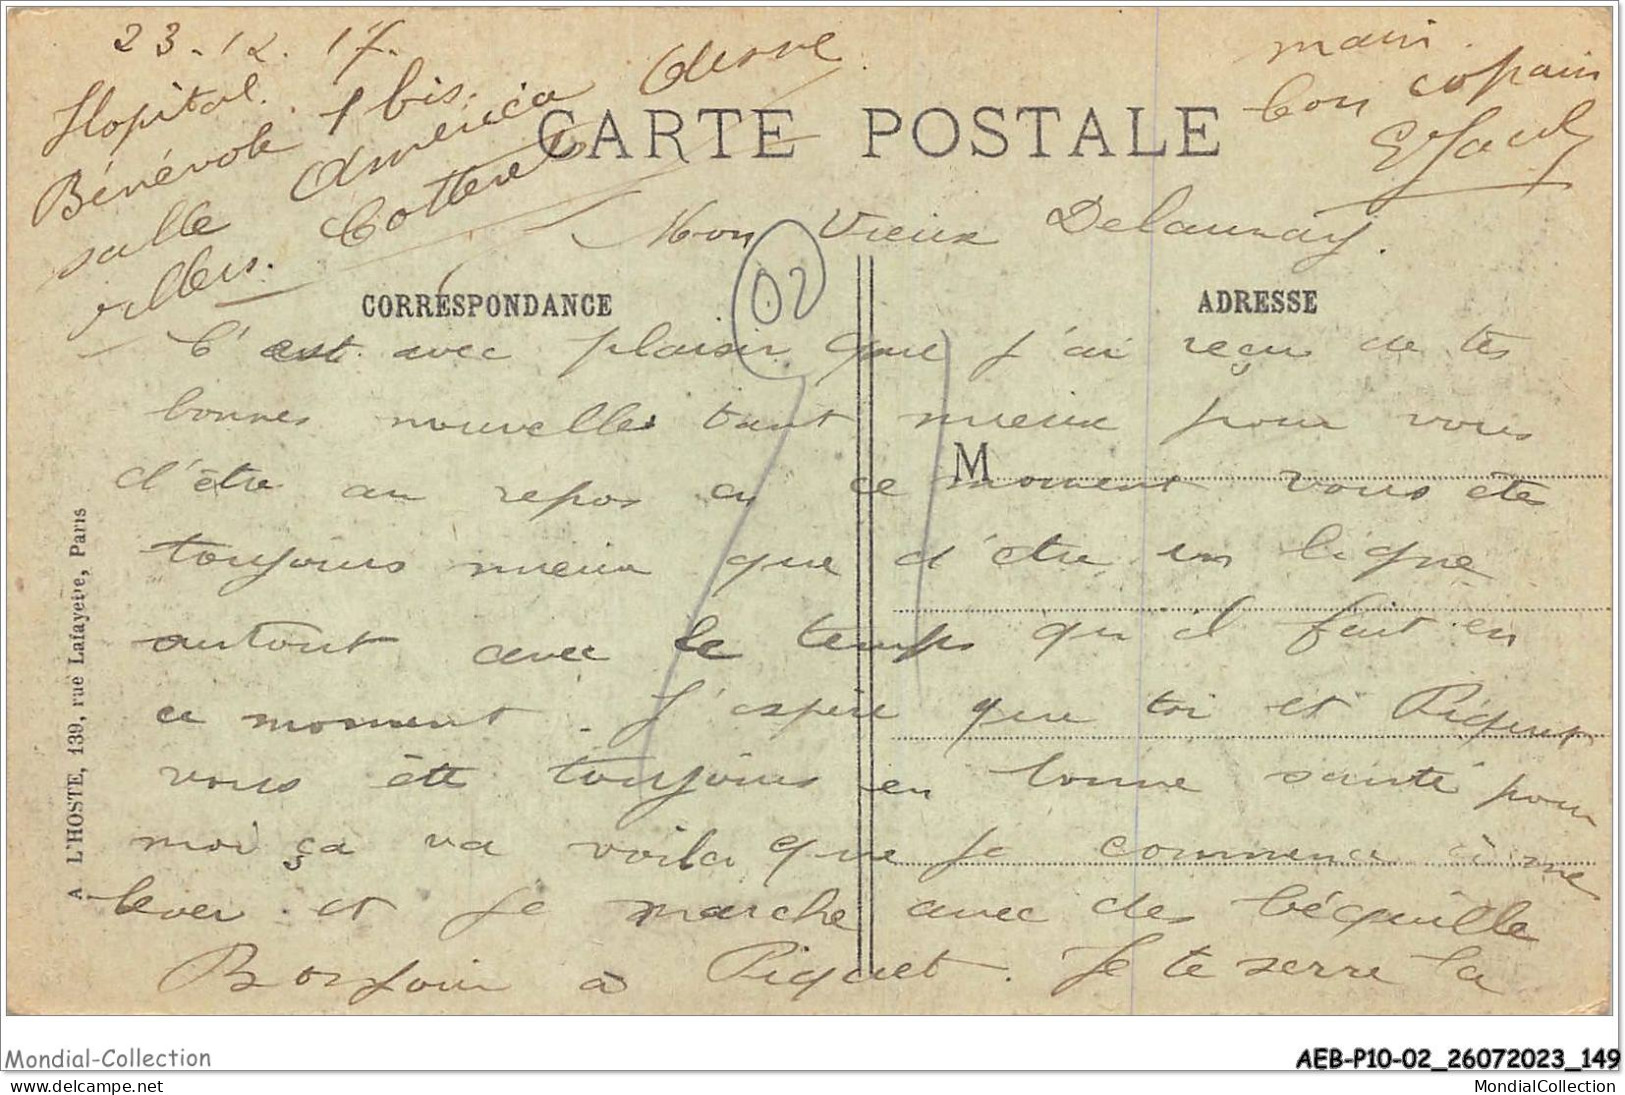 23.12.17.
Hopital.
Bénévole 1 bis.
salle America Aisne
villers. Cotterets
CARTE POSTALE
Mon Vieux Delaunay.
CORRESPONDANCE
ADRESSE
C'est avec plaisir que j'ai reçu de tes
bonnes nouvelles tant mieux pour vous
M
d'être au repos en ce moment vous êtes
toujours mieux que d'être en ligne
surtout avec le temps qu il fait en
ce moment. J'espère que toi et Piquet
vous ête toujours en bonne santé pour
moi ça va voila que je commence à me
lever et je marche avec des béquille
Bonjour à Piquet. Je te serre la
main.
ton copain
02
A. L'HOSTE, 139, rue Lafayette, Paris
Mondial-Collection
AEB-P10-02_26072023_149
MondialCollection